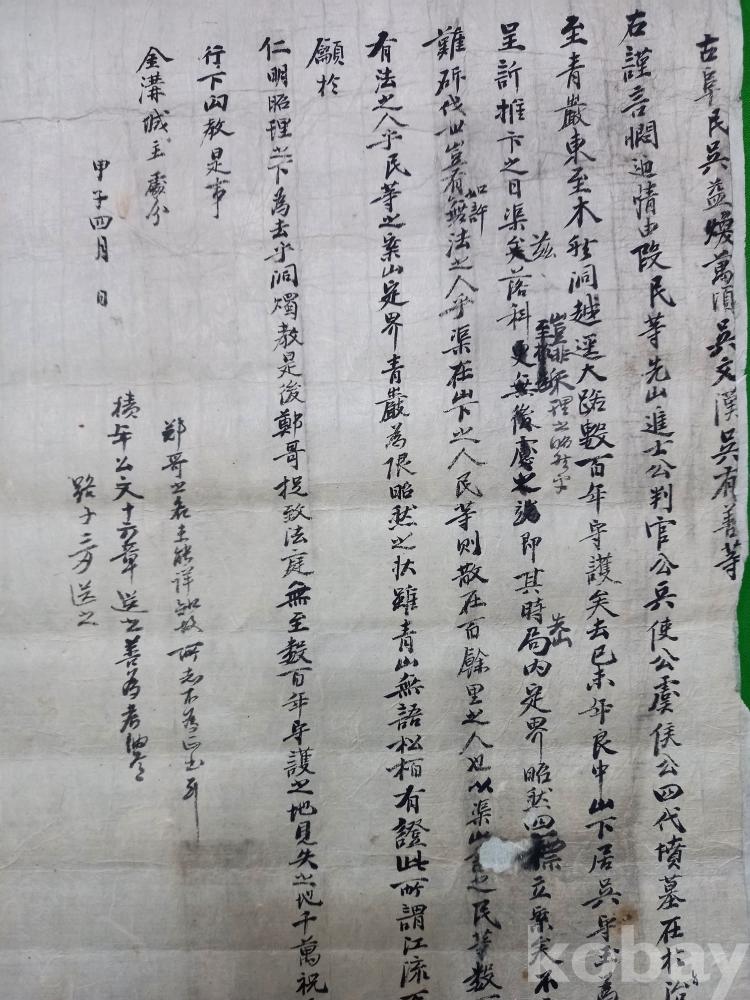 古阜民吳益煥萬頃吳文漢吳有善等
右謹言悶迫情由段民等先山進士公判官公兵使公虞侯公四代墳墓在於治
至青巖東至木 洞越 大路數百年守護矣去己未年良中山下居吳守玉為
呈訴推卞之日渠矣落科更無後慮之 即其時局內定界昭然四標立案矣不
難斫伐世豈有如許無法之人乎渠在山下之人民等則散在百餘里之人也以渠山 之民等數
有法之人乎民等之案山定界青巖為限昭然之狀雖青山無語松栢有證此所謂江流
顧於
仁明昭理之下為去乎洞燭教是後鄭哥捉致法庭無至數百年守護之地見失之地千萬祝
行下向教是事
金溝城主處分
甲子四月 日
鄭哥之 詳知故所志不為
積年公文十六章送之善為考
路十二 送之
kobay